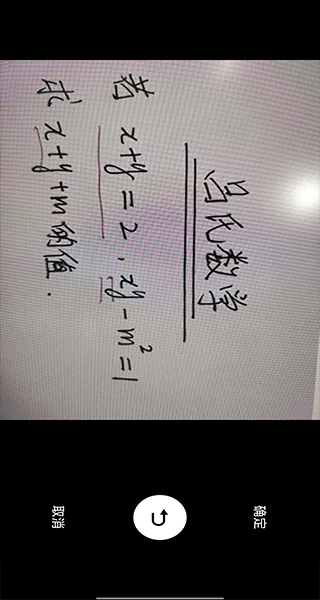 吕氏数学
若 x+y=2, xy-m²=1
求 x+y+m的值.
取消
确定